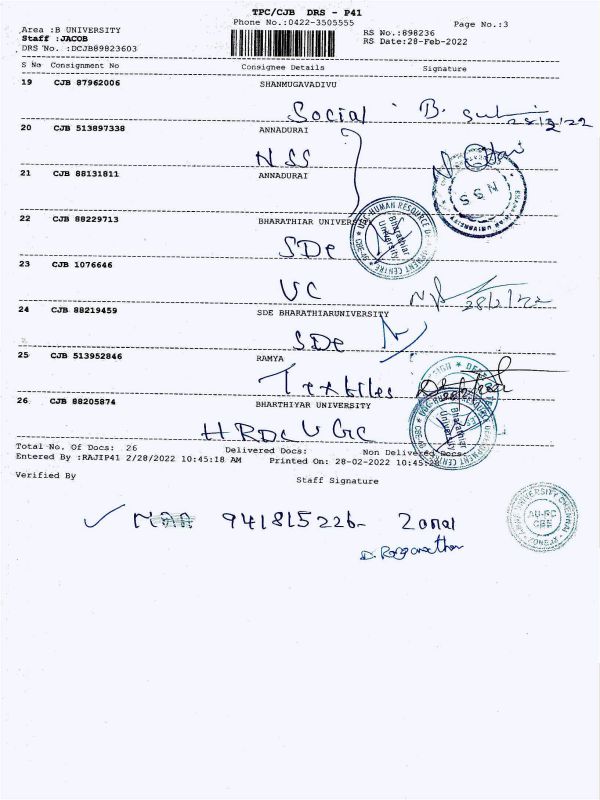 TPC/CJB DRS - P41
Phone No.:0422-3505555
Page No.:3
Area :B UNIVERSITY
Staff :JACOB
DRS No. :DCJB89823603
RS No.:898236
RS Date:28-Feb-2022
S No Consignment No Consignee Details Signature
19 CJB 87962006 SHANMUGAVADIVU
Social B.
20 CJB 513897338 ANNADURAI
NSS
21 CJB 88131811 ANNADURAI
NSS
22 CJB 88229713 BHARATHIAR UNIVERSITY
UGC-HUMAN RESOURCE DEVELOPMENT CENTRE
Bharathiar University
SDe
23 CJB 1076646
UC 28/2/22
24 CJB 88219459 SDE BHARATHIARUNIVERSITY
SDe
25 CJB 513952846 RAMYA
Textiles
26 CJB 88205874 BHARTHIYAR UNIVERSITY
Bharathiar University
HRDC UGC
Total No. Of Docs: 26 Delivered Docs: Non Delivered Docs:
Entered By :RAJIP41 2/28/2022 10:45:18 AM Printed On: 28-02-2022
Verified By Staff Signature
MAA 941815226 Zonal
D. Ranganathan
ANNA UNIVERSITY CHENNAI
AU-RC
CBE